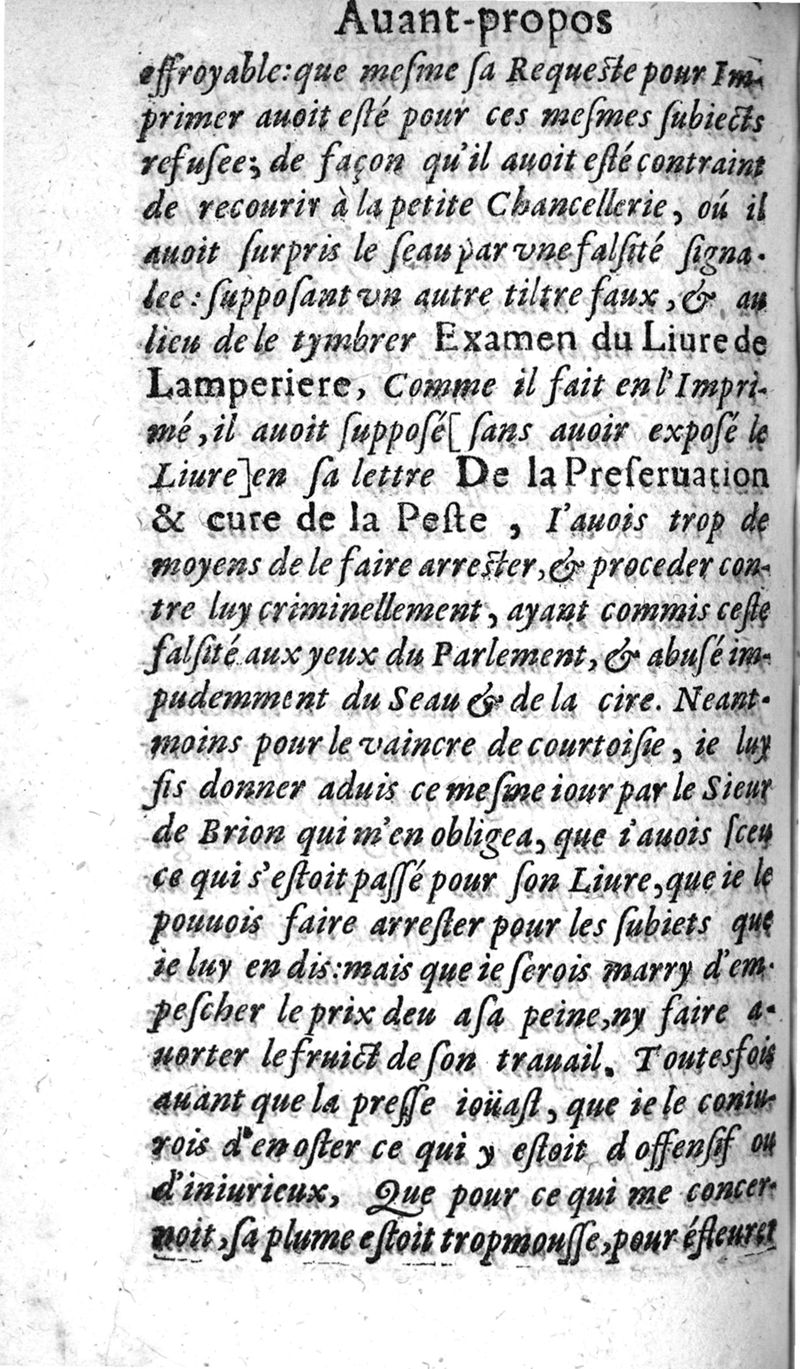 Auant-propos
effroyable: que meſme ſa Requeſte pour Im-
primer auoit eſté pour ces meſmes ſubiects
refuſee; de façon qu'il auoit eſté contraint
de recourir à la petite Chancellerie, oú il
auoit ſurpris le ſeau par vne falſité ſigna-
lee: ſuppoſant vn autre tiltre faux, & au
lieu de le tymbrer Examen du Liure de
Lamperiere, Comme il fait en l'Impri-
mé, il auoit ſuppoſé [ ſans auoir expoſé le
Liure] en ſa lettre De la Preſeruation
& cure de la Peſte, I'auois trop de
moyens de le faire arreſter, & proceder con-
tre luy criminellement, ayant commis ceſte
falſité aux yeux du Parlement, & abuſé im-
pudemment du Seau & de la cire. Neant-
moins pour le vaincre de courtoiſie, ie luy
fis donner aduis ce meſme iour par le Sieur
de Brion qui m'en obligea, que i'auois ſceu
ce qui s'eſtoit paſſé pour ſon Liure, que ie le
pouuois faire arreſter pour les ſubiets que
ie luy en dis: mais que ie ſerois marry d'em-
peſcher le prix deu a ſa peine, ny faire a-
uorter le fruict de ſon trauail. Toutesfois
auant que la preſſe ioüaſt, que ie le coniu-
rois d'en oſter ce qui y eſtoit d offenſif ou
d'iniurieux, Que pour ce qui me concer-
noit, ſa plume eſtoit trop mouſſe, pour éfleurer